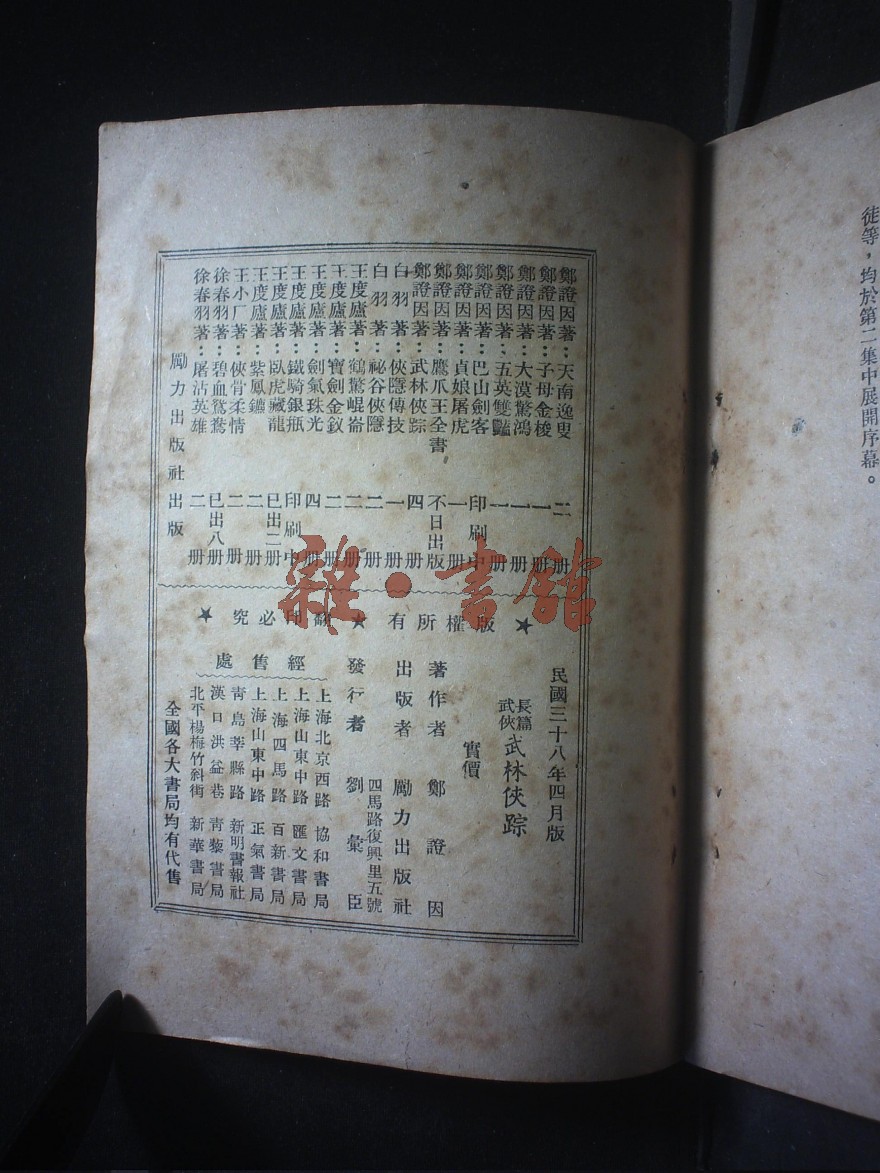 徒等，均於第二集中展開序幕。
鄭證因著：天南逸叟 二册
鄭證因著：子母金梭 一册
鄭證因著：大漠驚鴻 一册
鄭證因著：五英雙豔 一册
鄭證因著：巴山劍客 印刷中
鄭證因著：貞娘屠虎 一册
鄭證因著：鷹爪王全書 不日出版
鄭證因著：武林俠踪 四册
白羽著：俠隱傳技 一册
白羽著：祕谷俠隱 二册
王度廬著：鶴驚崐崙 二册
王度廬著：寶劍金釵 二册
王度廬著：劍氣珠光 四册
王度廬著：鐵騎銀瓶 印刷中
王度廬著：臥虎藏龍 已出二册
王度廬著：紫鳳鑣 二册
王小厂著：俠骨柔情 二册
徐春羽著：碧血鴛鴦 已出八册
徐春羽著：屠沽英雄 二册
勵力出版社出版
★版權所有★翻印必究★
民國三十八年四月版
長篇武俠 武林俠踪
實價
著作者 鄭證因
出版者 勵力出版社
四馬路復興里五號
發行者 劉彙臣
經售處
上海北京西路 協和書局
上海山東中路 匯文書局
上海四馬路 百新書局
上海山東中路 正氣書局
青島莘縣路 新明書報社
漢口洪益巷 青藜書局
北平楊梅竹斜街 新華書局
全國各大書局均有代售
雜·書館